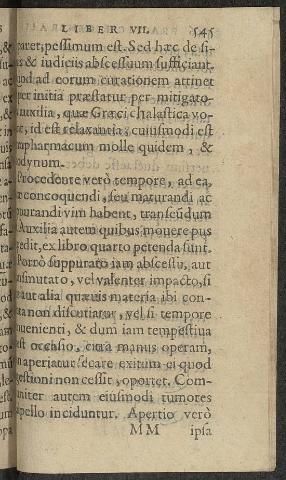 LIBER VII. 545
paret, pessimum est. Sed hæc de si-
is & iudiciis abscessuum sufficiant.
quod ad eorum curationem attinet
per initia præstatur per mitigato
auxilia, quæ Græci chalastica vo-
at, id est relaxantia, cuiusmodi est
mpharmacum molle quidem, &
odynum.
Procedente verò tempore, ad ea,
æ concoquendi, seu maturandi ac
purandi vim habent, transeũdum
Auxilia autem quibus mouere pus
pedit, ex libro quarto petenda sunt.
Porrò suppurato iam abscessu, aut
nsmutato, vel valenter impacto, si
aut alia quæuis materia ibi con-
ta non discutiatur, vel si tempore
nuenienti, & dum iam tempestiua
est occasio, citra manus operam,
n aperiatur secare exitum ei quod
gestioni non cessit, oportet. Com-
uniter autem eiusmodi tumores
apello inciduntur. Apertio verò
MM ipsa